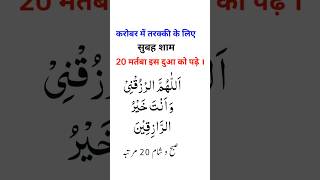 करोबर में तरक्की के लिए
सुबह शाम
20 मर्तबा इस दुआ को पढ़े ।
اَللّٰهُمَّ ارْزُقْنِیْ
وَاَنْتَ خَیْرُ
الرَّازِقِیْنَ
صبح و شام 20 مرتبہ